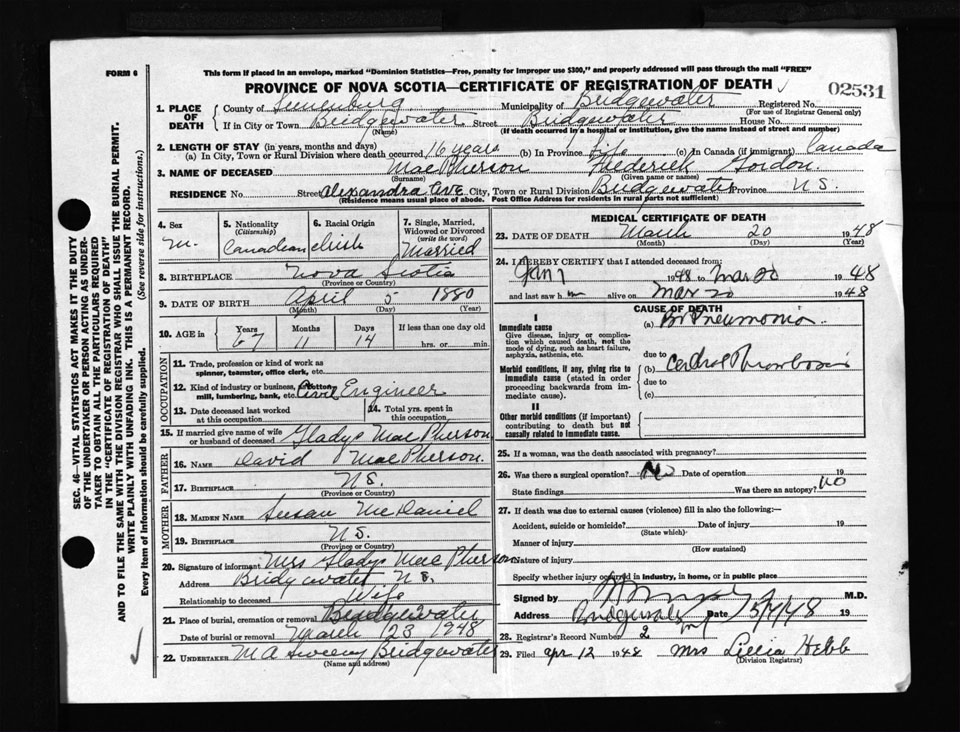 FORM 6
This form if placed in an envelope, marked "Dominion Statistics—Free, penalty for improper use $300," and properly addressed will pass through the mail "FREE"
PROVINCE OF NOVA SCOTIA—CERTIFICATE OF REGISTRATION OF DEATH
02531
1. PLACE OF DEATH
County of Lunenburg Municipality of Bridgewater Registered No.
(For use of Registrar General only)
If in City or Town Bridgewater Street Bridgewater House No.
(Name) (If death occurred in a hospital or institution, give the name instead of street and number)
2. LENGTH OF STAY (in years, months and days)
(a) In City, Town or Rural Division where death occurred 16 years (b) In Province life (c) In Canada (if immigrant) Canada
3. NAME OF DECEASED MacPherson Frederick Gordon
(Surname) (Given name or names)
RESIDENCE No. Street Alexandra Ave. City, Town or Rural Division Bridgewater Province N.S.
(Residence means usual place of abode. Post Office Address for residents in rural parts not sufficient)
4. Sex
M.
5. Nationality (Citizenship)
Canadian
6. Racial Origin
Irish
7. Single, Married, Widowed or Divorced (write the word)
Married
8. BIRTHPLACE Nova Scotia
(Province or Country)
9. DATE OF BIRTH April 5 1880
(Month) (Day) (Year)
10. AGE in
Years Months Days If less than one day old
67 11 14 hrs. or min.
OCCUPATION
11. Trade, profession or kind of work as spinner, teamster, office clerk, etc.
12. Kind of industry or business, as cotton mill, lumbering, bank, etc. Civil Engineer
13. Date deceased last worked at this occupation
14. Total yrs. spent in this occupation
15. If married give name of wife or husband of deceased Gladys MacPherson
FATHER
16. NAME David MacPherson
17. BIRTHPLACE N.S.
(Province or Country)
MOTHER
18. MAIDEN NAME Susan McDaniel
19. BIRTHPLACE N.S.
(Province or Country)
20. Signature of informant Mrs Gladys MacPherson
Address Bridgewater N.S.
Relationship to deceased Wife
21. Place of burial, cremation or removal Bridgewater
Date of burial or removal March 23 1948
22. UNDERTAKER M A Sweeny Bridgewater
(Name and address)
MEDICAL CERTIFICATE OF DEATH
23. DATE OF DEATH March 20 1948
(Month) (Day) (Year)
24. I HEREBY CERTIFY that I attended deceased from:
Jan 7 1948 to Mar 20 1948
and last saw h m alive on Mar 20 1948
CAUSE OF DEATH
I
Immediate cause
Give disease, injury or complication which caused death, not the mode of dying, such as heart failure, asphyxia, asthenia, etc.
(a) Pneumonia
due to
Morbid conditions, if any, giving rise to immediate cause (stated in order proceeding backwards from immediate cause).
(b) Thrombosis
due to
(c)
II
Other morbid conditions (if important) contributing to death but not causally related to immediate cause.
25. If a woman, was the death associated with pregnancy?
26. Was there a surgical operation? No Date of operation 19
State findings Was there an autopsy? No
27. If death was due to external causes (violence) fill in also the following:—
Accident, suicide or homicide? Date of injury 19
(State which)
Manner of injury
(How sustained)
Nature of injury
Specify whether injury occurred in industry, in home, or in public place
Signed by M.D.
Address Bridgewater Date 5/4/48 19
28. Registrar's Record Number 2
29. Filed Apr 12 1948 Mrs Lillia Hebb
(Division Registrar)
SEC. 46—VITAL STATISTICS ACT MAKES IT THE DUTY
OF THE UNDERTAKER OR PERSON ACTING AS UNDER-
TAKER TO OBTAIN ALL THE PARTICULARS REQUIRED
IN THE "CERTIFICATE OF REGISTRATION OF DEATH"
AND TO FILE THE SAME WITH THE DIVISION REGISTRAR WHO SHALL ISSUE THE BURIAL PERMIT.
WRITE PLAINLY WITH UNFADING INK. THIS IS A PERMANENT RECORD.
Every item of Information should be carefully supplied. (See reverse side for instructions.)